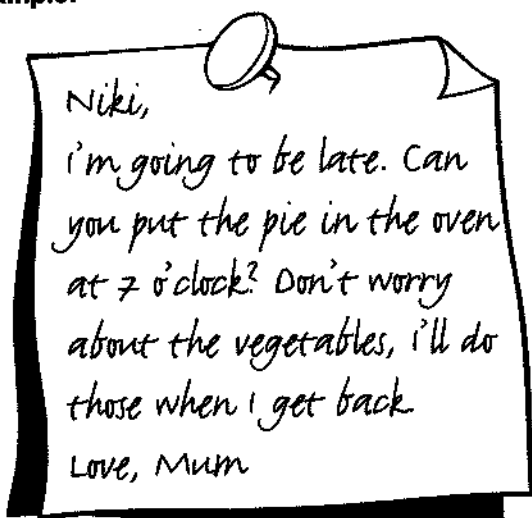 Niki,
i'm going to be late. Can
you put the pie in the oven
at 7 o'clock? Don't worry
about the vegetables, i'll do
those when I get back
Love, Mum